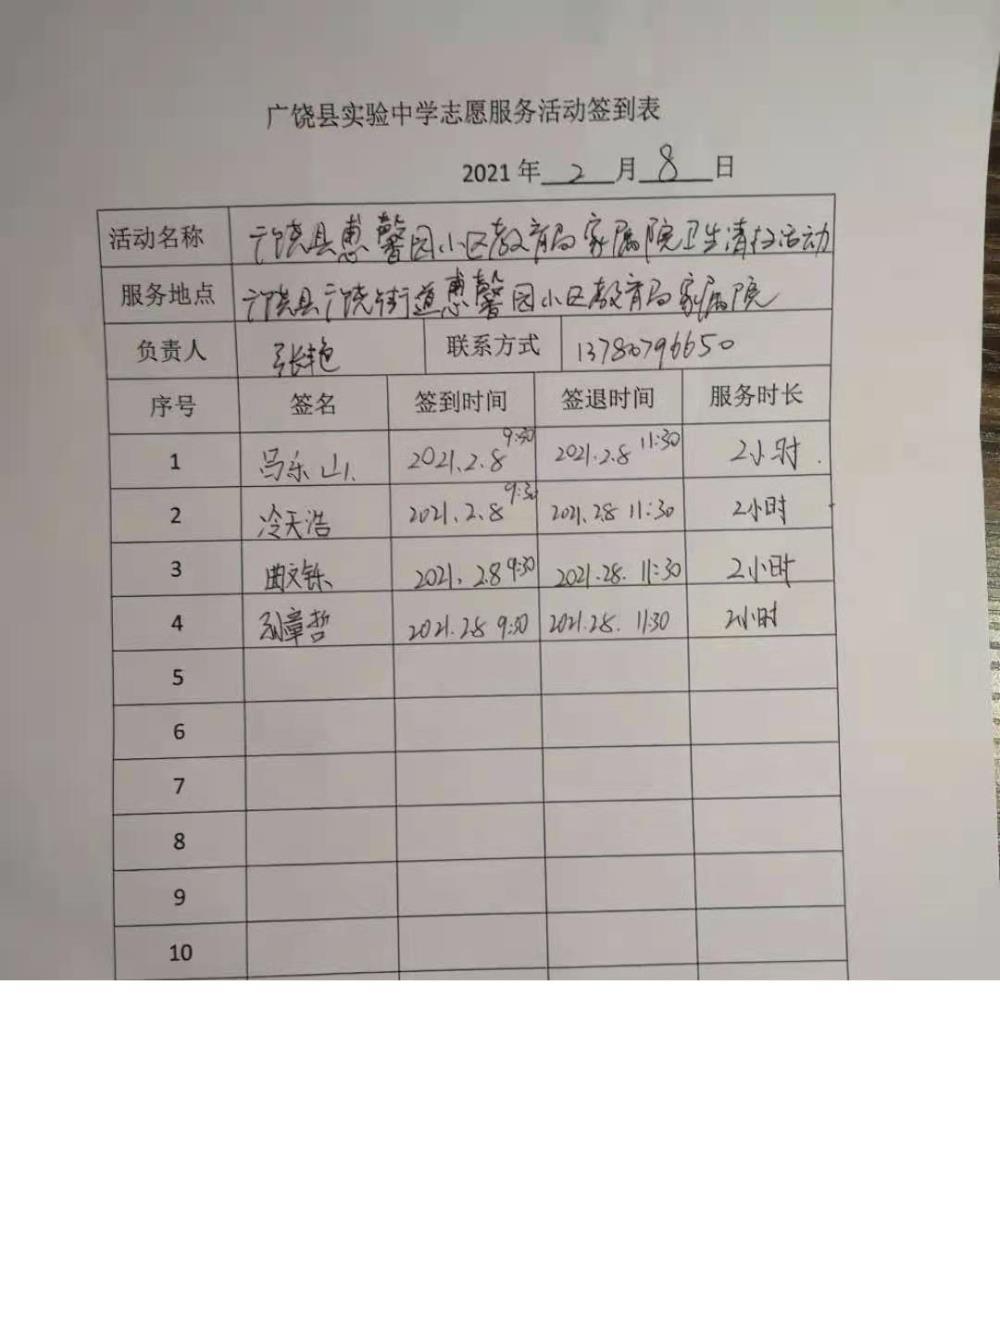 广饶县实验中学志愿服务活动签到表
2021年 2 月 8 日
活动名称 广饶县惠馨园小区教育局家属院卫生清扫活动
服务地点 广饶县广饶街道惠馨园小区教育局家属院
负责人 张艳 联系方式 13780796650
序号 签名 签到时间 签退时间 服务时长
1 冯乐山 2021.2.8 9:30 2021.2.8 11:30 2小时
2 冷天浩 2021.2.8 9:30 2021.2.8 11:30 2小时
3 曲文铄 2021.2.8 9:30 2021.2.8. 11:30 2小时
4 章哲 2021.2.8 9:30 2021.2.8. 11:30 2小时
5
6
7
8
9
10